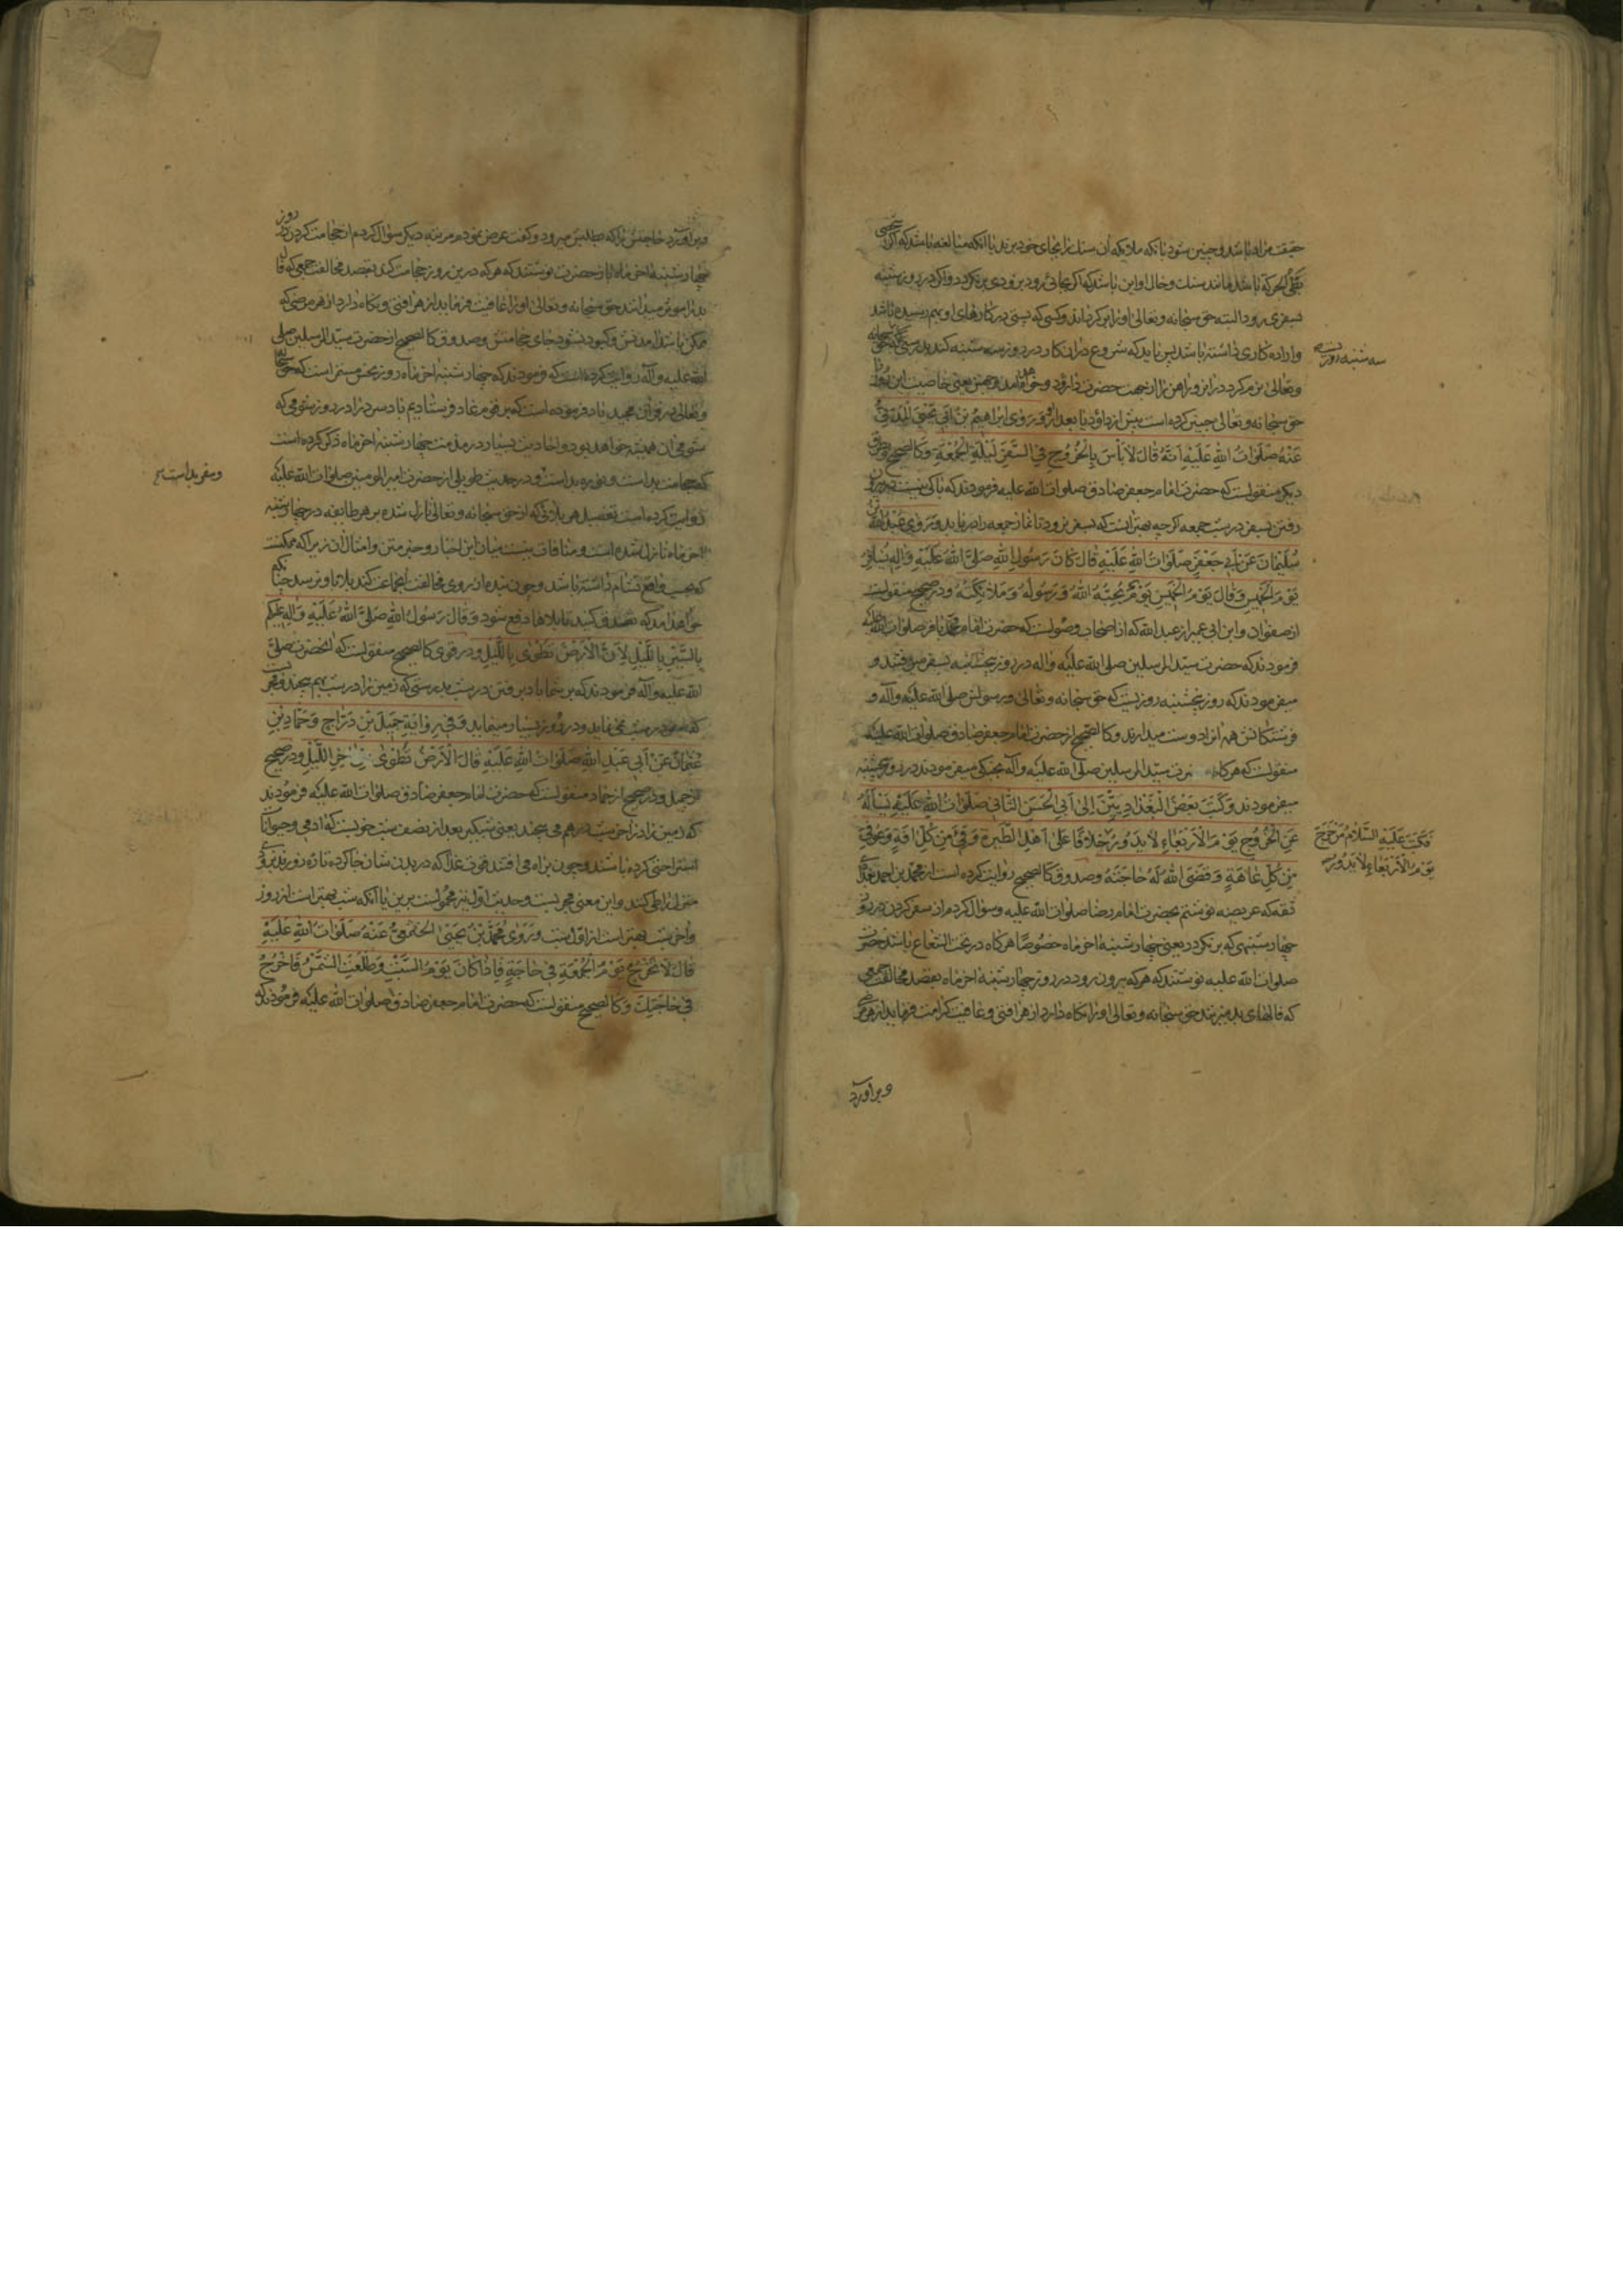 حقیقت مراد باشد و چنین شود یا آنکه ملایکه آن سنك را بجای خود برند یا آنکه مبالغه باشد که اگر
بطئ الحرکة باشد مانند سنك و حال او این باشد که اگر بجائی رود بزودی بر نکردد و اگر در روز شنبه
بسفری رود البته حق سبحانه و تعالی او را بر کرداند و کسی که پستی در کارهای او بهم رسیده باشد
و اراده کاری داشته باشد پس باید که شروع در آن کار در روز سه شنبه کند بدرستی که حق سبحانه
سه شنبه روزیست
و تعالی نرم کرد در این روز آهن را از جهت حضرت داود و خواهد آمد و همین یعنی خاصیت این روز را
حق سبحانه و تعالی چنین کرده است پیش از داود یا بعد از او وَ رَوٰی اِبْرٰاهِیمُ بْنُ اَبِی یَحْیَی الْمَدَنِیُّ
عَنْهُ صَلَوٰاتُ اللّٰهِ عَلَیْهِ اَنَّهُ قٰالَ لاٰ بَأْسَ بِالْخُرُوجِ فِی السَّفَرِ لَیْلَةَ الْجُمُعَةِ وکا الصحیح
دیکر منقولست که حضرت امام جعفر صادق صلوات الله علیه فرمودند که باکی نیست در بیرون
رفتن بسفر در شب جمعه اکرچه بهتر آنست که بسفر نرود تا نماز جمعه را دریابد وَ رَوٰی عَبْدُ اللّٰهِ بْنُ
سُلَیْمٰانَ عَنْ اَبِی جَعْفَرٍ صَلَوٰاتُ اللّٰهِ عَلَیْهِ قٰالَ کٰانَ رَسُولُ اللّٰهِ صَلَّی اللّٰهُ عَلَیْهِ وَ اٰلِهِ یُسٰافِرُ
یَوْمَ الْخَمِیسِ وَ قٰالَ یَوْمُ الْخَمِیسِ یَوْمٌ یُحِبُّهُ اللّٰهُ وَ رَسُولُهُ وَ مَلاٰئِکَتُهُ و در صحیح منقولست
از صفوان و ابن ابی عمیر از عبد الله که از اصحاب وصولست که حضرت امام محمد باقر صلوات الله علیه
فرمودند که حضرت سید المرسلین صلی الله علیه و آله در روز پنجشنبه بسفر میرفتند و
میفرمودند که روز پنجشنبه روزیست که حق سبحانه و تعالی و رسولش صلی الله علیه و آله و
فرشتکانش همه آنرا دوست میدارند و کا الصحیح از حضرت امام جعفر صادق صلوات الله علیه
منقولست که هرگاه حضرت سید المرسلین صلی الله علیه و آله بجنکی میفرمودند در روز پنجشنبه
میفرمودند وَ کَتَبَ بَعْضُ الْبَغْدٰادِیِّینَ اِلٰی اَبِی الْحَسَنِ الثّٰانِی صَلَوٰاتُ اللّٰهِ عَلَیْهِ یَسْأَلُهُ
عَنِ الْخُرُوجِ یَوْمَ الْاَرْبَعٰاءِ لاٰ یَدُورُ خِلاٰفاً عَلٰی اَهْلِ الطِّیَرَةِ وُقِیَ مِنْ کُلِّ اٰفَةٍ وَ عُوفِیَ
فَکَتَبَ عَلَیْهِ السَّلاٰمُ مَنْ خَرَجَ
یَوْمَ الْاَرْبَعٰاءِ لاٰ یَدُورُ
مِنْ کُلِّ عٰاهَةٍ وَ قَضَی اللّٰهُ لَهُ حٰاجَتَهُ و صدوق کا الصحیح روایت کرده است از محمد بن احمد
ثقه که عریضه نوشتم بحضرت امام رضا صلوات الله علیه و سؤال کردم از سفر کردن در روز
چهار شنبهی که بر نکردد یعنی چهار شنبه آخر ماه خصوصا هرگاه در تحت الشعاع باشد حضرت
صلوات الله علیه نوشتند که هر که بیرون رود در روز چهار شنبه آخر ماه بقصد مخالفت جمعی
که فالهای بد میزنند حق سبحانه و تعالی او را نکاه دارد از هر آفتی و عافیت کرامت فرماید از هر
و برآورد
و برآورد حاجتش را که بطلبش میرود و گفت عرض نمودم مرتبه دیکر سؤال کردم از حجامت کردن در روز
چهار شنبه آخر ماه باز حضرت نوشتند که هر که درین روز حجامت کند بقصد مخالفت جمعی که فال
بد را موثر میدانند حق سبحانه و تعالی او را عافیت فرماید از هر آفتی و نکاه دارد از هر مرضی که
ممکن باشد آمدنش و کبود نشود جای حجامتش و صدوق کا الصحیح از حضرت سید المرسلین صلی
الله علیه و آله روایت کرده است که فرمودند که چهار شنبه آخر ماه روز نحس مستمر است که حق سبحانه
و تعالی در قرآن مجید یاد فرموده است که بر قوم عاد فرستادیم باد سرد را در روز شومی که
شومی آن همیشه خواهد بود و احادیث بسیار در مذمت چهار شنبه آخر ماه ذکر کرده است
که حجامت بد است و نوره بد است و در حدیث طویلی از حضرت امیر المومنین صلوات الله علیه
و سفر بد است
روایت کرده است تفصیل هر بلائی که از حق سبحانه و تعالی نازل شده بر هر طایفه در چهار شنبه
آخر ماه نازل شده است و منافات نیست میان این اخبار و خبر متن و امثال آن زیرا که ممکنست
که بحسب واقع تشأم داشته باشد و چون بنده از روی مخالفت آن جماعت کند بلا باو نرسد چنانکه
خواهد آمد که تصدق کنید تا بلاها دفع شود وَ قٰالَ رَسُولُ اللّٰهِ صَلَّی اللّٰهُ عَلَیْهِ وَ اٰلِهِ عَلَیْکُمْ
بِالسَّیْرِ بِاللَّیْلِ فَاِنَّ الْاَرْضَ تُطْوٰی بِاللَّیْلِ و در قوی کا الصحیح منقولست که آنحضرت صلی
الله علیه و آله فرمودند که بر شما باد برفتن در شب بدرستی که زمین را در شب بهم میپیچند
که در شب نمی‌نماید و در روز بسیار مینماید وَ فِی رِوٰایَةِ جَمِیلِ بْنِ دَرّٰاجٍ وَ حَمّٰادِ بْنِ
عُثْمٰانَ عَنْ اَبِی عَبْدِ اللّٰهِ صَلَوٰاتُ اللّٰهِ عَلَیْهِ قٰالَ الْاَرْضُ تُطْوٰی مِنْ اٰخِرِ اللَّیْلِ و در صحیح
از جمیل و در صحیح از حماد منقولست که حضرت امام جعفر صادق صلوات الله علیه فرمودند
که زمین را در آخر شب در هم می پیچند یعنی شبکیر بعد از نصف شب خوبست که آدمی و حیوانات
استراحتی کرده باشند و چون براه می افتند قوت غذا که در بدن ایشان جا کرده تازه زور
منزل را طی کنند و این معنی مجربست و حدیث اول نیز محمولست برین یا آنکه شب بهتر است از روز
و آخر شب بهتر است از اول شب وَ رَوٰی مُحَمَّدُ بْنُ یَحْیَی الْخَثْعَمِیُّ عَنْهُ صَلَوٰاتُ اللّٰهِ عَلَیْهِ
قٰالَ لاٰ تَخْرُجْ یَوْمَ الْجُمُعَةِ فِی حٰاجَةٍ فَاِذٰا کٰانَ یَوْمُ السَّبْتِ وَ طَلَعَتِ الشَّمْسُ فَاخْرُجْ
فِی حٰاجَتِکَ و کا الصحیح منقولست که حضرت امام جعفر صادق صلوات الله علیه فرمودند که